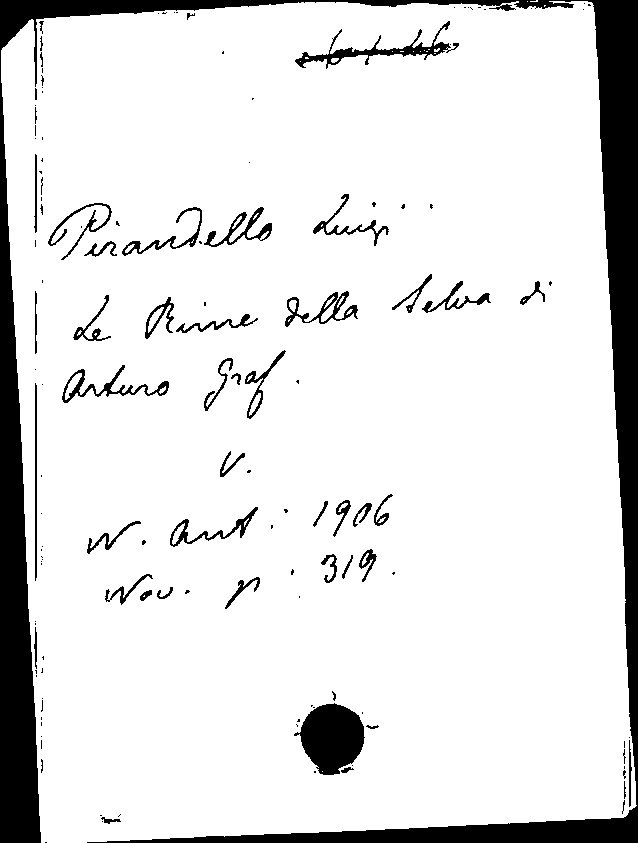 Pirandello Luigi
Le Rime della Selva di
Arturo Graf.
V.
N. Ant: 1906
Nov. p. 319.